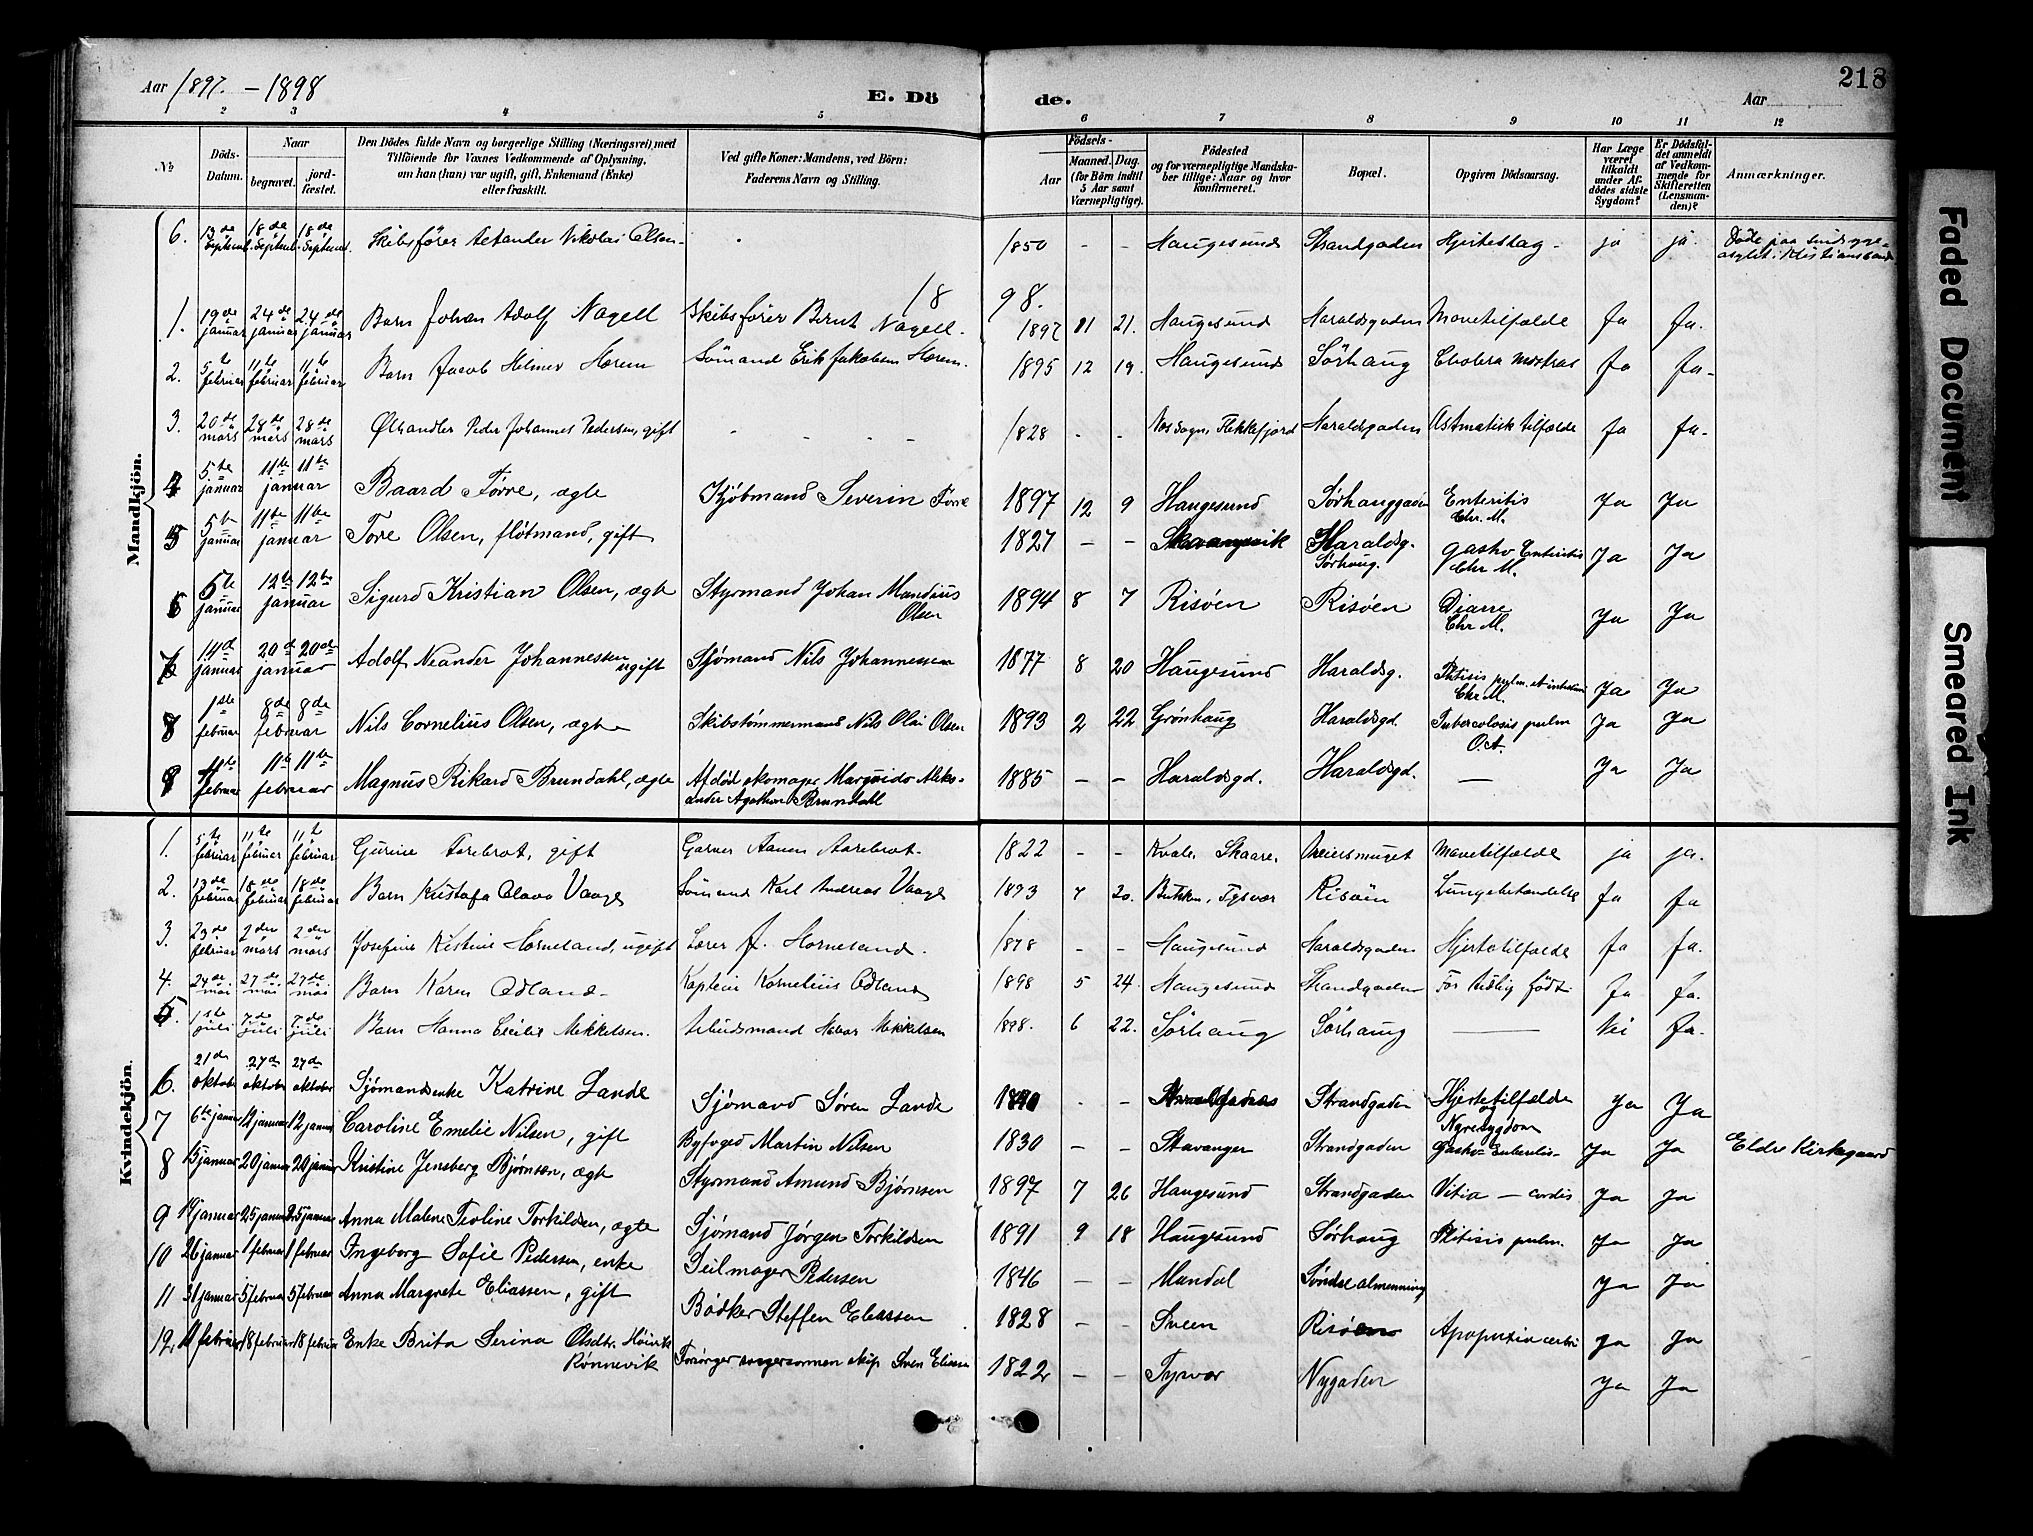 Aar 1897. - 1898
E. Dö de.
Aar
218
1 2 3 4 5 6 7 8 9 10 11 12
№
Döds-Datum.
Naar
begravet.
jord-fæstet.
Den Dödes fulde Navn og borgerlige Stilling (Næringsvei), med Tilföiende for Voxnes Vedkommende af Oplysning, om han (hun) var ugift, gift, Enkemand (Enke) eller fraskilt.
Ved gifte Koner: Mandens, ved Börn: Faderens Navn og Stilling.
Födsels-
Aar
Maaned. Dag.
(for Börn indtil 5 Aar samt Værnepligtige).
Födested og for værnepligtige Mandska-ber tillige: Naar og hvor konfirmeret.
Bopæl.
Opgiven Dödsaarsag.
Har Læge været tilkaldt under Af-dödes sidste Sygdom?
Er Dödsfal-det anmeldt af Vedkom-mende for Skifteretten (Lensman-den)?
Anmærkninger.
Mandkjön.
6. 13de Septemb. 18de Septemb. 18de Septemb. Skibsfører Nikolai Olsen - 1850 - - Haugesund Strandgaden Hjerteslag - ja ja. Døde paa Sindssyge-asylet i Kristianssand
18 98.
1. 19de januar 24de januar 24de januar Barn Johan Adolf Nagell Skibsfører Bernt Nagell. 1897 11 21. Haugesund Haraldsgaden Mavetilfælde Ja Ja.
2. 5te februar 11te februar 11te februar Barn Jacob Helmer Hærem Sömand Erik Jakobsen Hærem. 1895 12 19. Haugesund Sörhaug Cholera nostras Ja Ja-
3. 20de mars 28de mars 28de mars Ølhandler Peder Johannes Pedersen, gift - - - - 1828 - - Næs sogn, Flekkefjord Haraldsgaden Astmatisk tilfælde Ja Ja-
4 5te januar 11te januar 11te Baard Førre, ægte Kjøbmand Severin Førre 1897 12 9 Haugesund Sørhauggaden Enteritis Chr. M. Ja Ja
5 5te januar 11te januar 11te Tore Olsen, fløtmand, gift 1827 - - Haraldsg. Sørhaug. Gastro Enteritis Chr M. Ja Ja
6 5te januar 12te januar 12te Sigurd Kristian Olsen, ægte Styrmand Johan Mandius Olsen 1894 8 7 Risøen Risøen Diarre Chr M. Ja Ja
7 14de januar 20de januar 20de Adolf Neander Johannessen ugift Sjømand Nils Johannessen 1877 8 20 Haugesund Haraldsg. Phtisis pulm. et intestini Chr M. Ja Ja
8 1ste februar 8de februar 8de Nils Cornelius Olsen, ægte Skibstømmermand Nils Olai Olsen 1893 2 22 Grønhaug Haraldsgd. Tuberculosis pulm O.A. Ja Ja
9 4te februar 11te februar 11te Magnus Rikard Brundahl, ægte Afdød skomager Marquido Aleks-ander Agathon Brundahl 1885 - - Haraldsgd. Haraldsgd. — Ja Ja
Kvindekjön.
1. 5te februar 11te februar 11te februar Gurine Aarebrot, gift Garver Aanen Aarebrot. 1822 - - Kvale, Skaare. Mavetilfælde ja ja.
2. 13de februar 18de februar 18de februar Barn Kristofa Olava Vaage Sömand Karl Andreas Vaage 1893 7 20. Tysvær Risöen Lungebetændelse Ja Ja
3. 23de februar 2den mars 2den mars Josefine Kristine Horneland, ugift Lærer J. Horneland. 1878 - - Haugesund Haraldsgaden Hjertetilfælde Ja Ja.
4. 24de mai 27de mai 27de mai Barn Karen Ødland - Kaptein Kornelius Ødland 1898 5 24. Haugesund Strandgaden For tidlig födt Ja Ja.
5. 1ste juli 7de juli 7de juli Barn Hanna Cecilie Mikkelsen. Arbeidsmand Mikkelsen 1898. 6 22. Sörhaug Sörhaug — Nei Ja-
6. 21de oktober 27de oktober 27de oktober Sjømandsenke Katrine Lande Sjømand Søren Lande - - Strandgaden Hjertetilfælde og Nyresygdom Ja Ja
7 6te januar 12 januar 12 januar Caroline Emelie Nilsen, gift Byfoged Martin Nilsen 1830 - - Stavanger Strandgaden Gastro-Enteritis- Ja Ja Eldre Kirkegaard
8 15 januar 20 januar 20 januar Kristine Jensberg Bjørnsen, ægte Styrmand Amund Bjørnsen 1897 7 26 Haugesund Strandgaden Vitia - cordis Ja Ja
9 19 januar 25 januar 25 januar Anna Malene Teoline Torkildsen, ægte Sjømand Jørgen Torkildsen 1891 9 18 Haugesund Sørhaug Phtisis pulm. Ja Ja
10 26 januar 1 februar 1 februar Ingeborg Sofie Pedersen, enke Seilmager Pedersen 1846 - - Mandal Søndre almenning Ja Ja
11 31 januar 5 februar 5 februar Anna Margrete Eliassen, gift Bødker Steffen Eliassen 1828 - - Sveen Risøen Apoplexia cerebri Ja Ja
12. 11 februar 18 februar 18 februar Enke Brita Serina Olsdtr. Høivik Rønnevik Forsørger svigersønnen skip. Sven Eliassen 1822 - - Tysvær Nygaden Ja Ja
Faded Document
Smeared Ink